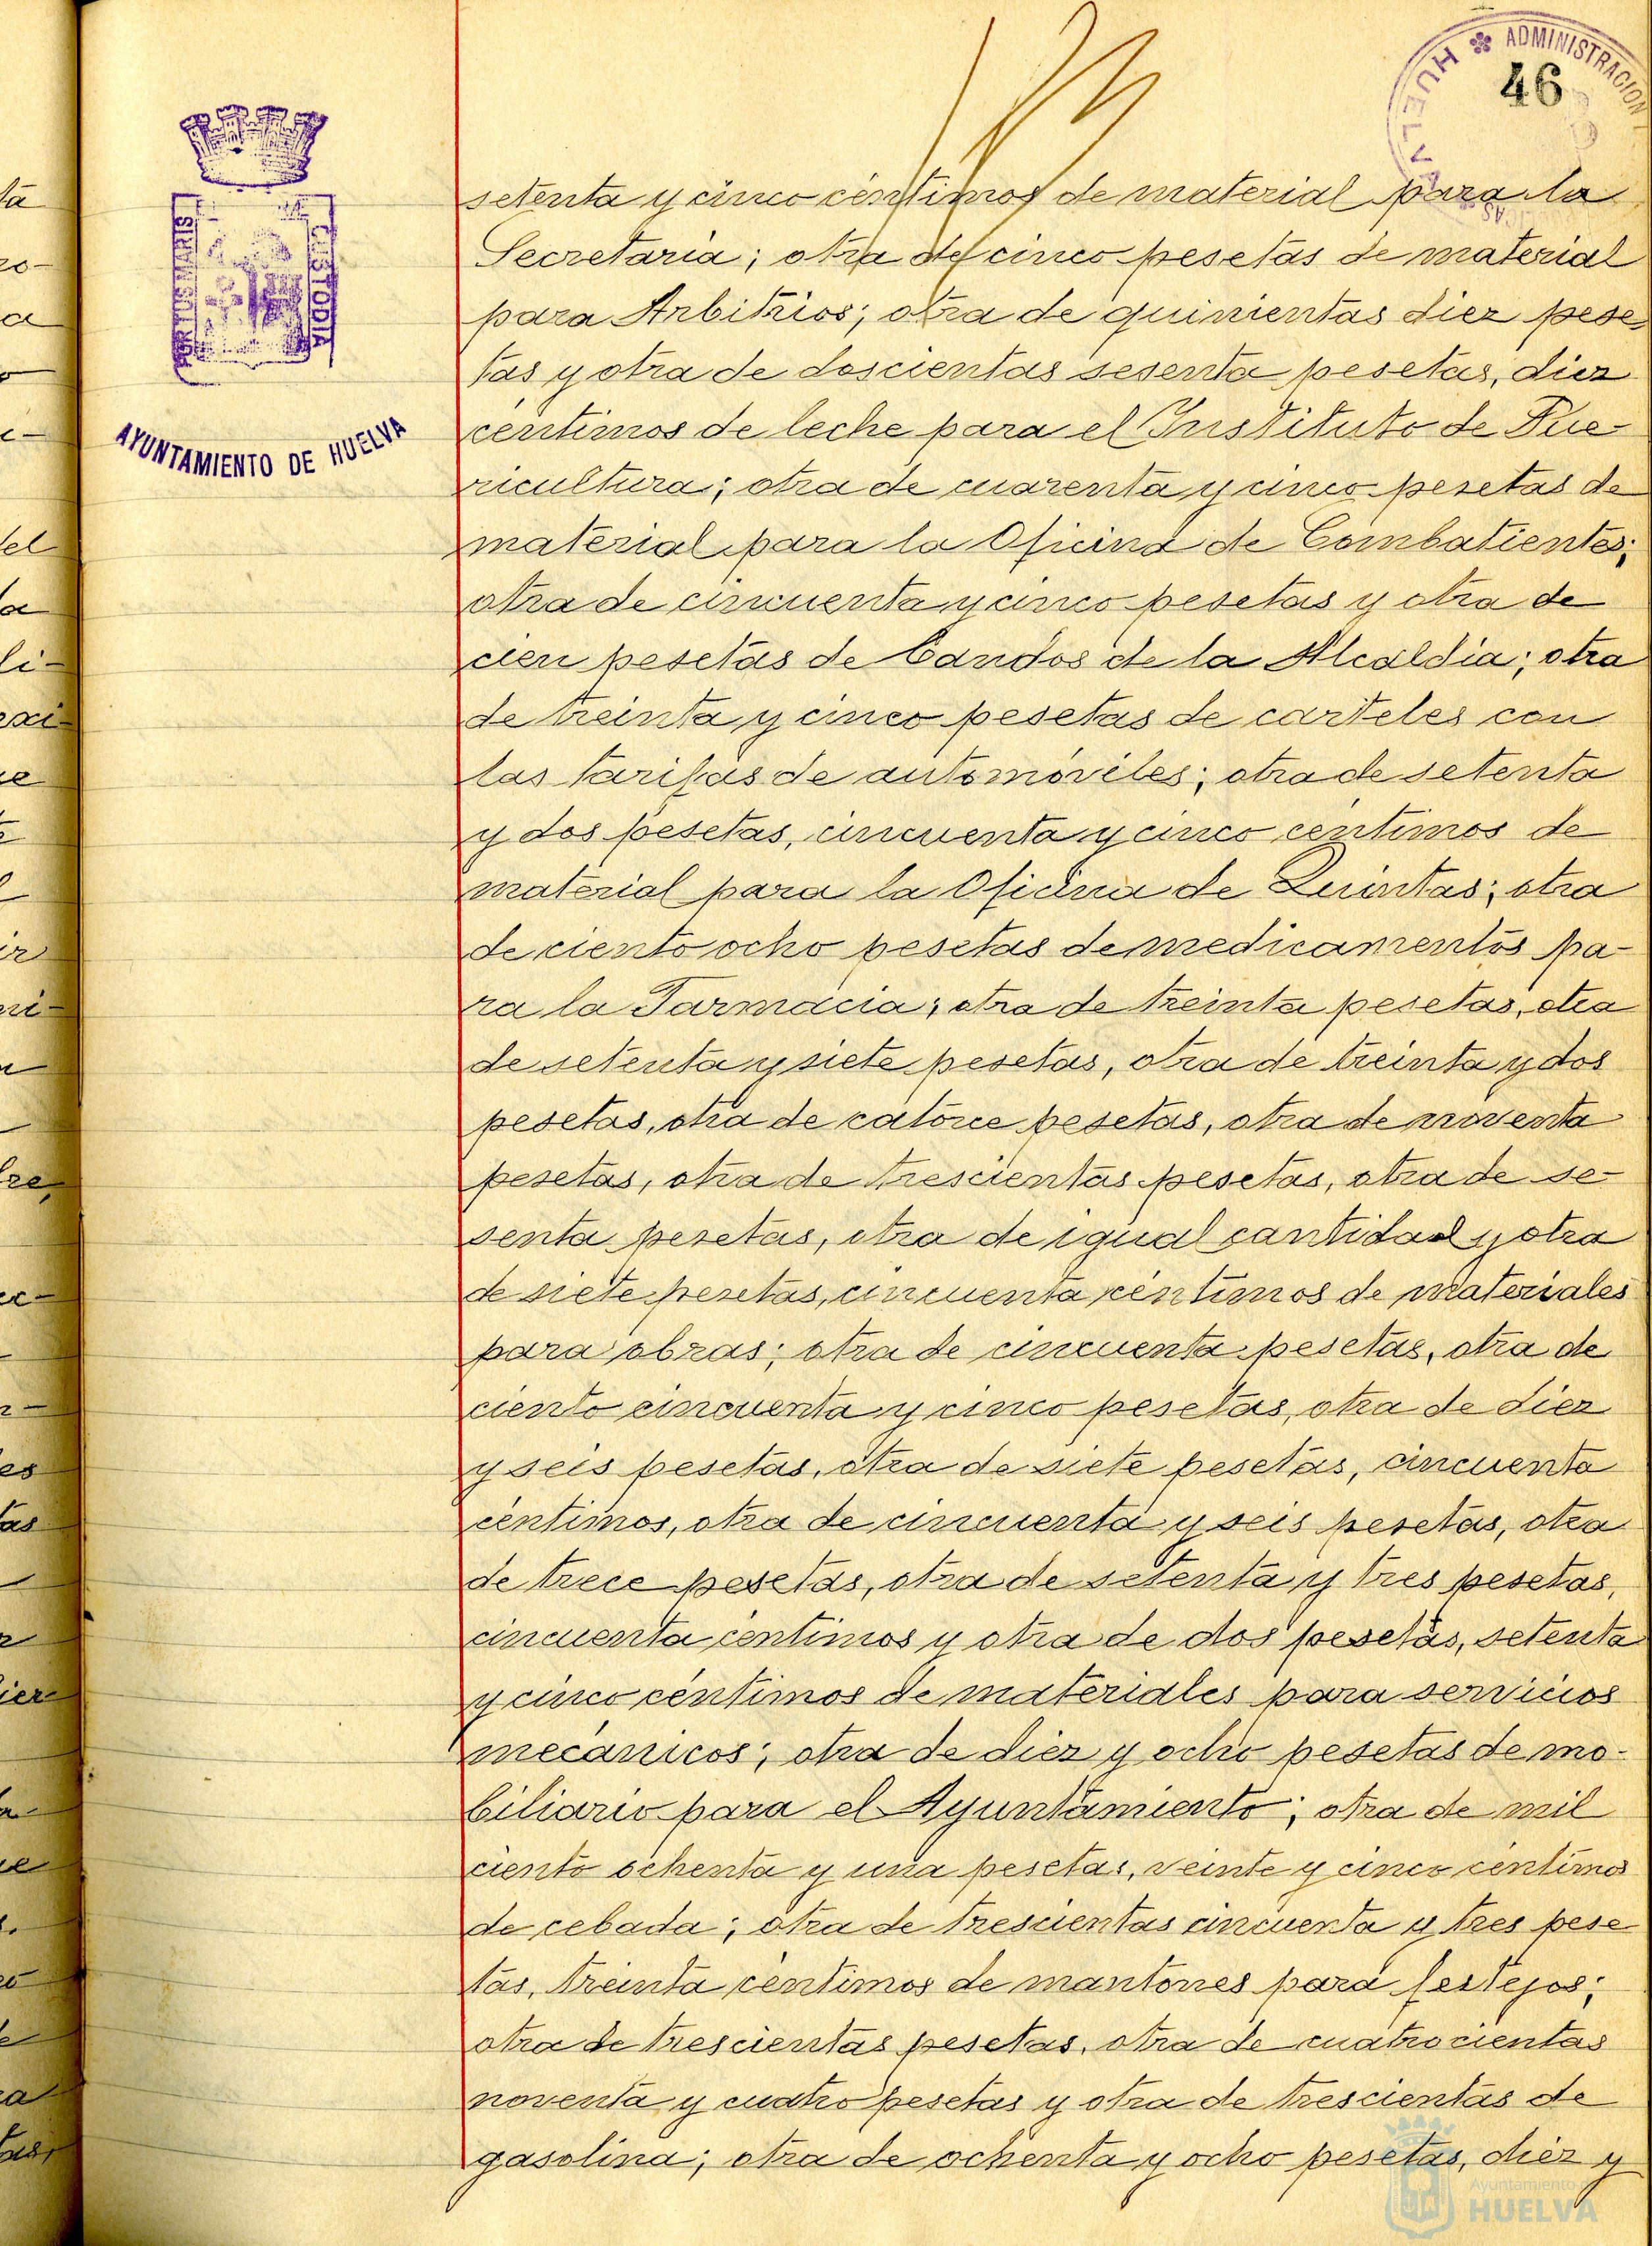 ADMINISTRACION
HUELVA
46
PORTUS MARIS
CUSTODIA
AYUNTAMIENTO DE HUELVA
setenta y cinco céntimos de material para la
Secretaria; otra de cinco pesetas de material
para Arbitrios; otra de quinientas diez pese-
tas y otra de doscientas sesenta pesetas, diez
céntimos de leche para el Instituto de Pue-
ricultura; otra de cuarenta y cinco pesetas de
material para la Oficina de Combatientes;
otra de cincuenta y cinco pesetas y otra de
cien pesetas de Bandos de la Alcaldia; otra
de treinta y cinco pesetas de carteles con
las tarifas de automóviles; otra de setenta
y dos pesetas, cincuenta y cinco centimos de
material para la Oficina de Quintas; otra
de ciento ocho pesetas de medicamentos pa-
ra la Farmacia; otra de treinta pesetas, otra
de setenta y siete pesetas, otra de treinta y dos
pesetas, otra de catorce pesetas, otra de noventa
pesetas, otra de trescientas pesetas, otra de se-
senta pesetas, otra de igual cantidad y otra
de siete pesetas, cincuenta céntimos de materiales
para obras; otra de cincuenta pesetas, otra de
ciento cincuenta y cinco pesetas, otra de diez
y seis pesetas, otra de siete pesetas, cincuenta
céntimos, otra de cincuenta y seis pesetas, otra
de trece pesetas, otra de setenta y tres pesetas,
cincuenta centimos y otra de dos pesetas, setenta
y cinco céntimos de materiales para servicios
mecánicos; otra de diez y ocho pesetas de mo-
biliario para el Ayuntamiento; otra de mil
ciento ochenta y una pesetas, veinte y cinco centimos
de cebada; otra de trescientas cincuenta y tres pese
tas, treinta céntimos de mantones para festejos;
otra de trescientas pesetas, otra de cuatrocientas
noventa y cuatro pesetas y otra de trescientas de
gasolina; otra de ochenta y ocho pesetas, diez y
Ayuntamiento
HUELVA